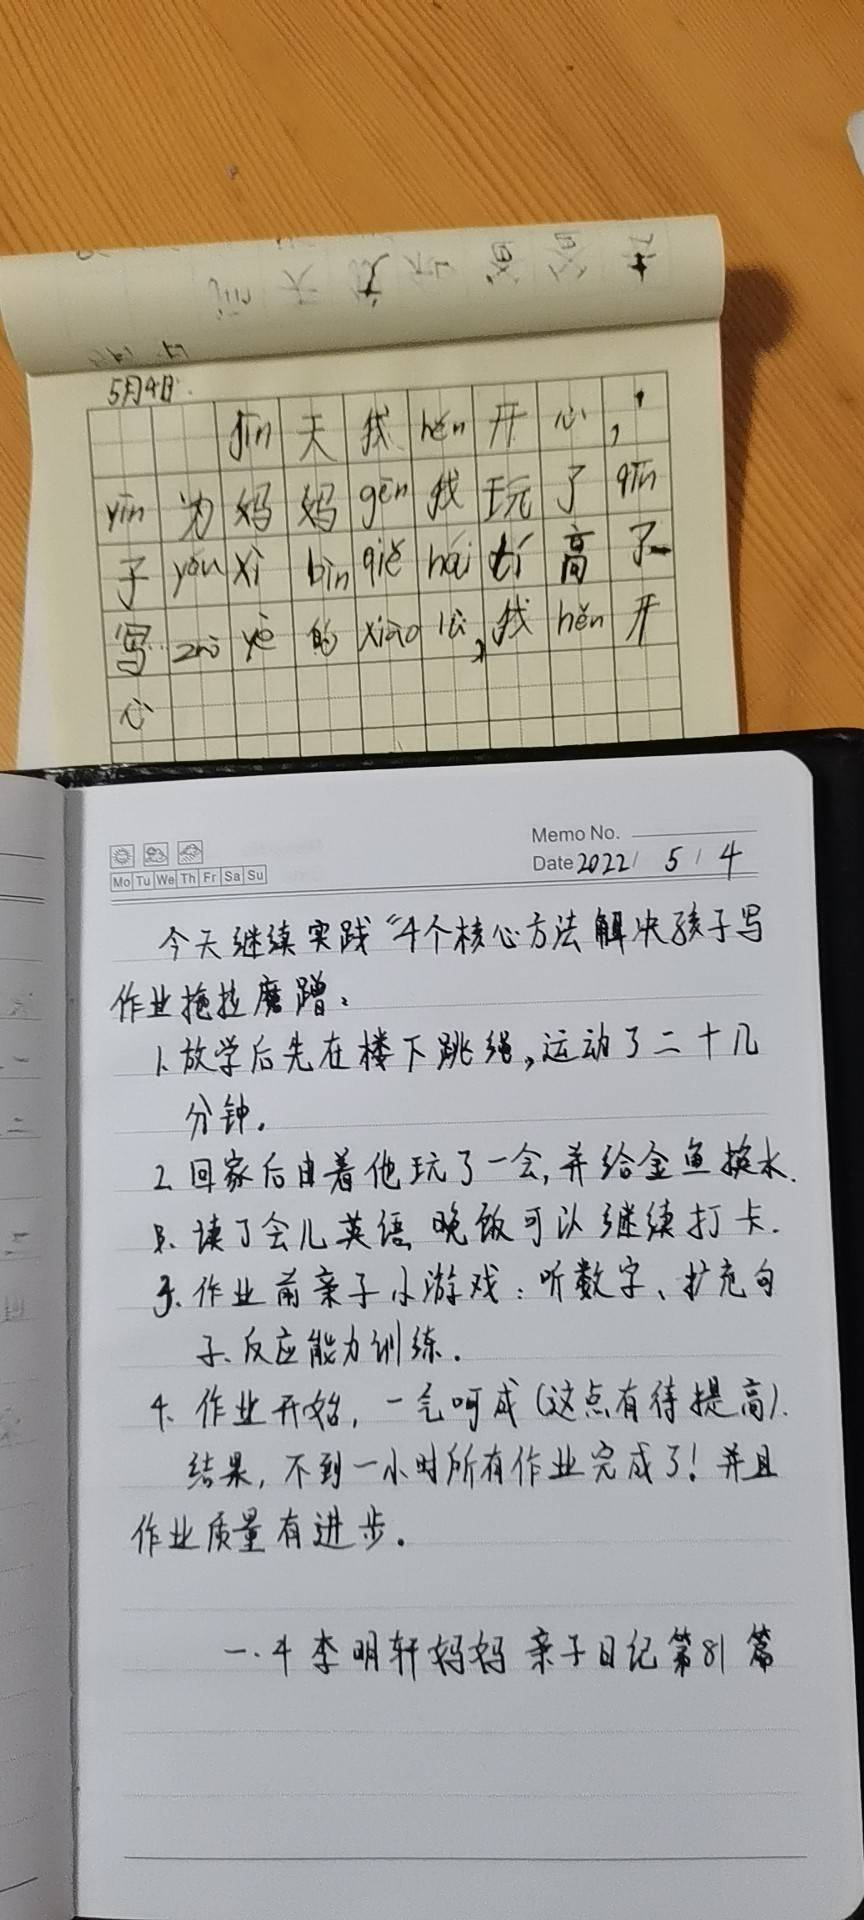 5月4日
jīn天我hěn开心,
yīn为妈妈gēn我玩了qīn
子yóu xì bìn qiě hái tí高了
写zuò yè的xiào lǜ,我hěn开
心
Memo No.
Mo Tu We Th Fr Sa Su
Date 2022/ 5 / 4
今天继续实践“4个核心方法解决孩子写
作业拖拉磨蹭:
1.放学后先在楼下跳绳,运动了二十几
分钟.
2.回家后由着他玩了一会,并给金鱼换水.
读了会儿英语,晚饭可以继续打卡.
3.作业前亲子小游戏:听数字、扩充句
子、反应能力训练.
4.作业开始,一气呵成(这点有待提高).
结果,不到一小时所有作业完成了!并且
作业质量有进步。
一.4李明轩妈妈亲子日记第81篇